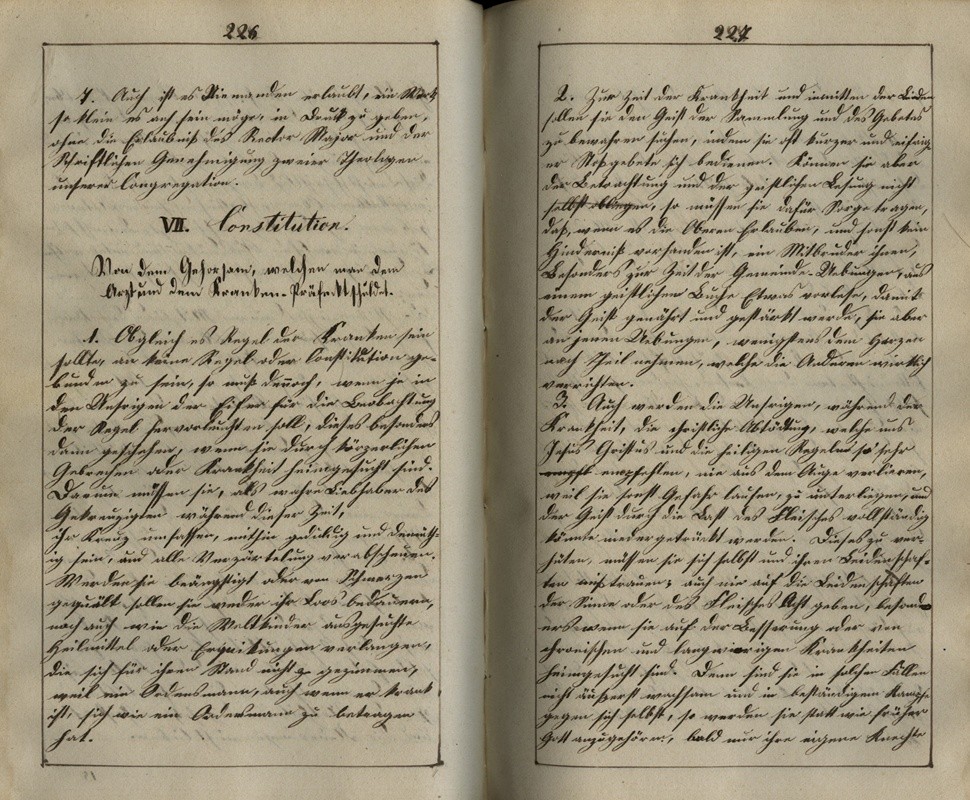 226
7. Auch ist es Niemanden erlaubt, ein Werk
so klein es auch sein möge, in Druck zu geben,
ohne die Erlaubniß des Rector Major und der
Schriftlichen Genehmigung zweier Theologen
unserer Congregation.
VII. Constitution.
Von dem Gehorsam, welchen man dem
Arzt und dem Kranken-Präfekt schuldet.
1. Obgleich es Regel der Kranken sein
sollte, an keine Regel oder Constitution ge-
bunden zu sein, so muß dennoch, wenn je in
den Unsrigen der Eifer für die Beobachtung
der Regel hervorleuchten soll, dieses besonders
dann geschehen, wenn sie durch körperlichen
Gebrechen oder Krankheit heimgesucht sind.
Darum müssen sie, als wahre Liebhaber des
Gekreuzigten während dieser Zeit,
ihr Kreuz umfassen, mithin geduldig und demüth-
ig sein, und alle Verzärtelung verabscheuen.
Werden sie beängstigt oder von Schmerzen
gequält sollen sie weder ihr Loos bedauern,
noch auch wie die Weltkinder ausgesuchte
Heilmittel oder Erquikungen verlangen,
die sich für ihren Stand nicht geziemen,
weil ein Ordensmann, auch wenn er krank
ist, sich wie ein Ordensmann zu betragen
hat.
227
2. Zur Zeit der Krankheit und inmitten der Leiden
sollen sie den Geist der Sammlung und des Gebetes
zu bewahren suchen, indem sie oft kurzer und eifrig-
er Stoßgebete sich bedienen. Können sie aber
der Betrachtung und der geistlichen Lesung nicht
selbst obliegen, so müssen sie dafür Sorge tragen,
daß, wenn es die Oberen erlauben, und sonst kein
Hinderniß vorhanden ist, ein Mitbruder ihnen,
besonders zur Zeit der Gemeinde-Uebungen, aus
einem geistlichen Buche Etwas vorlese, damit
der Geist genährt und gestärkt werde, sie aber
an jenen Uebungen, wenigstens dem Herzen
nach Theil nehmen, welche die Anderen wirklich
verrichten.
3. Auch werden die Unsrigen, während der
Krankheit, die christliche Abtödtung, welche uns
Jesus Christus und die heiligen Regeln so sehr
empfehlen, nie aus dem Auge verlieren,
weil sie sonst Gefahr laufen, zu unterliegen, und
der Geist durch die Last des Fleisches vollständig
könnte niedergedrückt werden. Dieses zu ver-
hüten, müssen sie sich selbst und ihren Leidenschaf-
ten mißtrauen; auch nie auf die Leidenschaften
der Sinne oder des Fleisches Acht geben, besond-
ers wenn sie auf der Besserung oder von
chronischen und langwierigen Krankheiten
heimgesucht sind. Denn sind sie in solchen Fällen
nicht äußerst wachsam und in beständigem Kampfe
gegen sich selbst, so werden sie statt wie früher
Gott anzugehören, bald nur ihre eigene Knechte